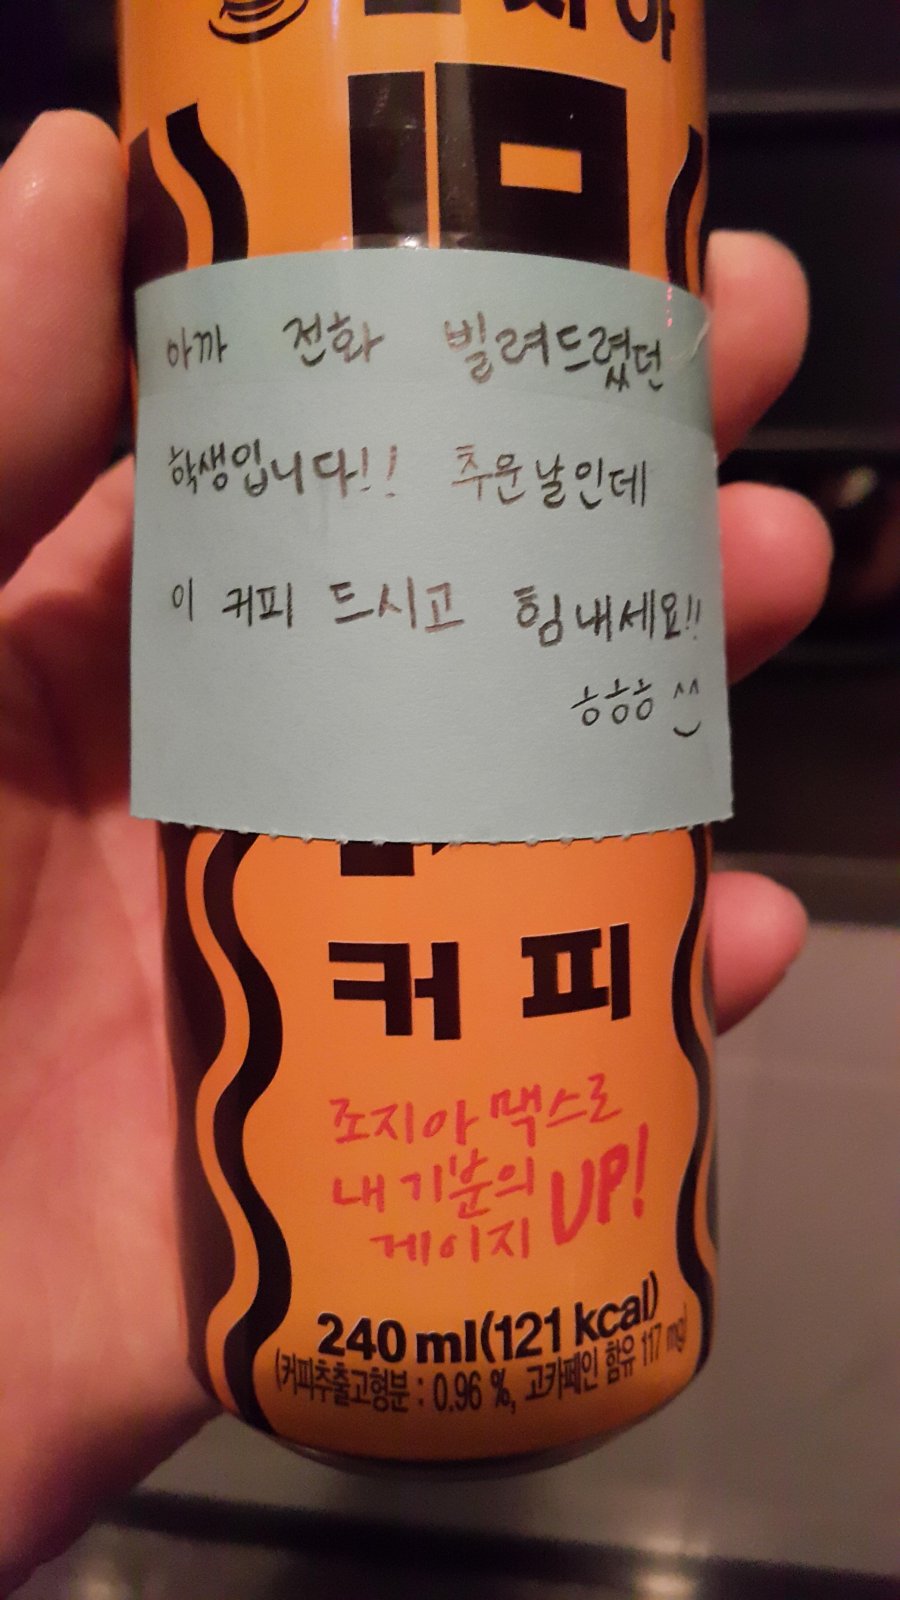 아까 전화 빌려드렸던
학생입니다!! 추운날인데
이 커피 드시고 힘내세요!!
ㅎㅎㅎ ^^
커피
조지아 맥스로
내 기분의
게이지 UP!
240 ml(121 kcal)
(커피추출고형분 : 0.96 %, 고카페인 함유 117 mg)